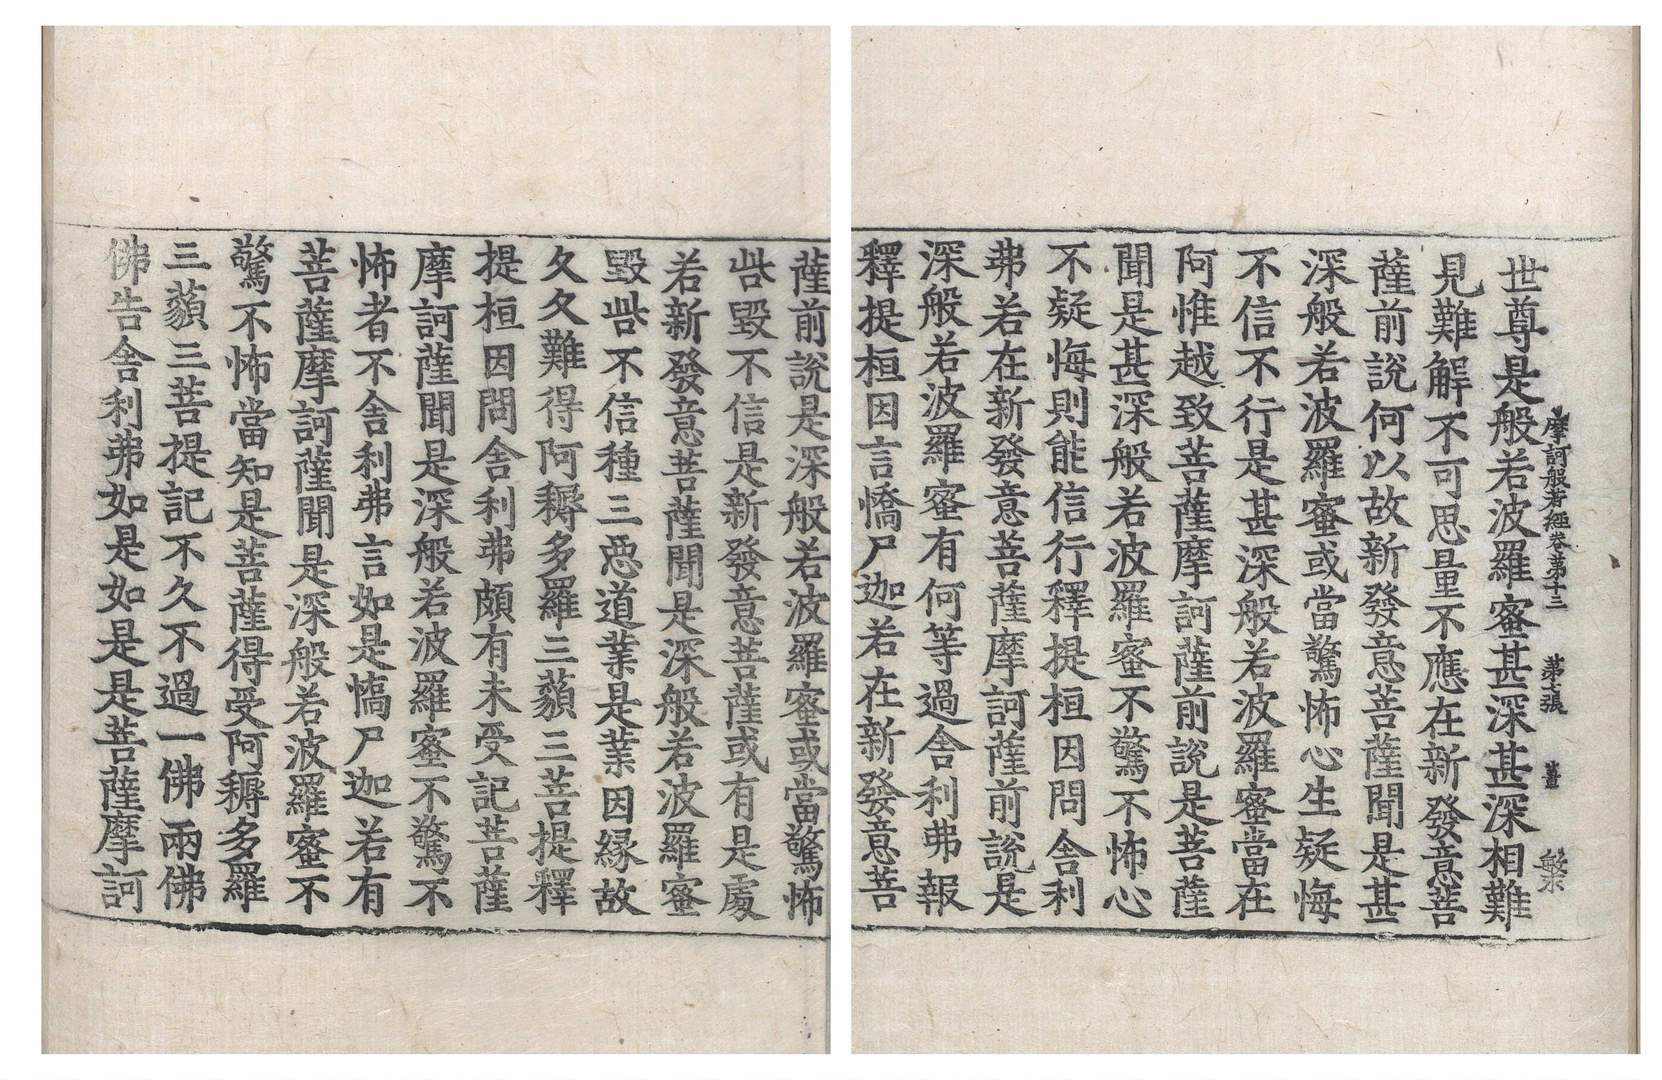 摩訶般若經卷第十三 第七張
世尊是般若波羅蜜甚深甚深相難
見難解不可思量不應在新發意菩
薩前說何以故新發意菩薩聞是甚
深般若波羅蜜或當驚怖心生疑悔
不信不行是甚深般若波羅蜜當在
阿惟越致菩薩摩訶薩前說是菩薩
聞是甚深般若波羅蜜不驚不怖心
不疑悔則能信行釋提桓因問舍利
弗若在新發意菩薩摩訶薩前說是
深般若波羅蜜有何等過舍利弗報
釋提桓因言憍尸迦若在新發意菩
薩前說是深般若波羅蜜或當驚怖
呰毀不信是新發意菩薩或有是處
若新發意菩薩聞是深般若波羅蜜
毀呰不信種三惡道業是業因緣故
久久難得阿耨多羅三藐三菩提釋
提桓因問舍利弗頗有未受記菩薩
摩訶薩聞是深般若波羅蜜不驚不
怖者不舍利弗言如是憍尸迦若有
菩薩摩訶薩聞是深般若波羅蜜不
驚不怖當知是菩薩得受阿耨多羅
三藐三菩提記不久不過一佛兩佛
佛告舍利弗如是如是是菩薩摩訶